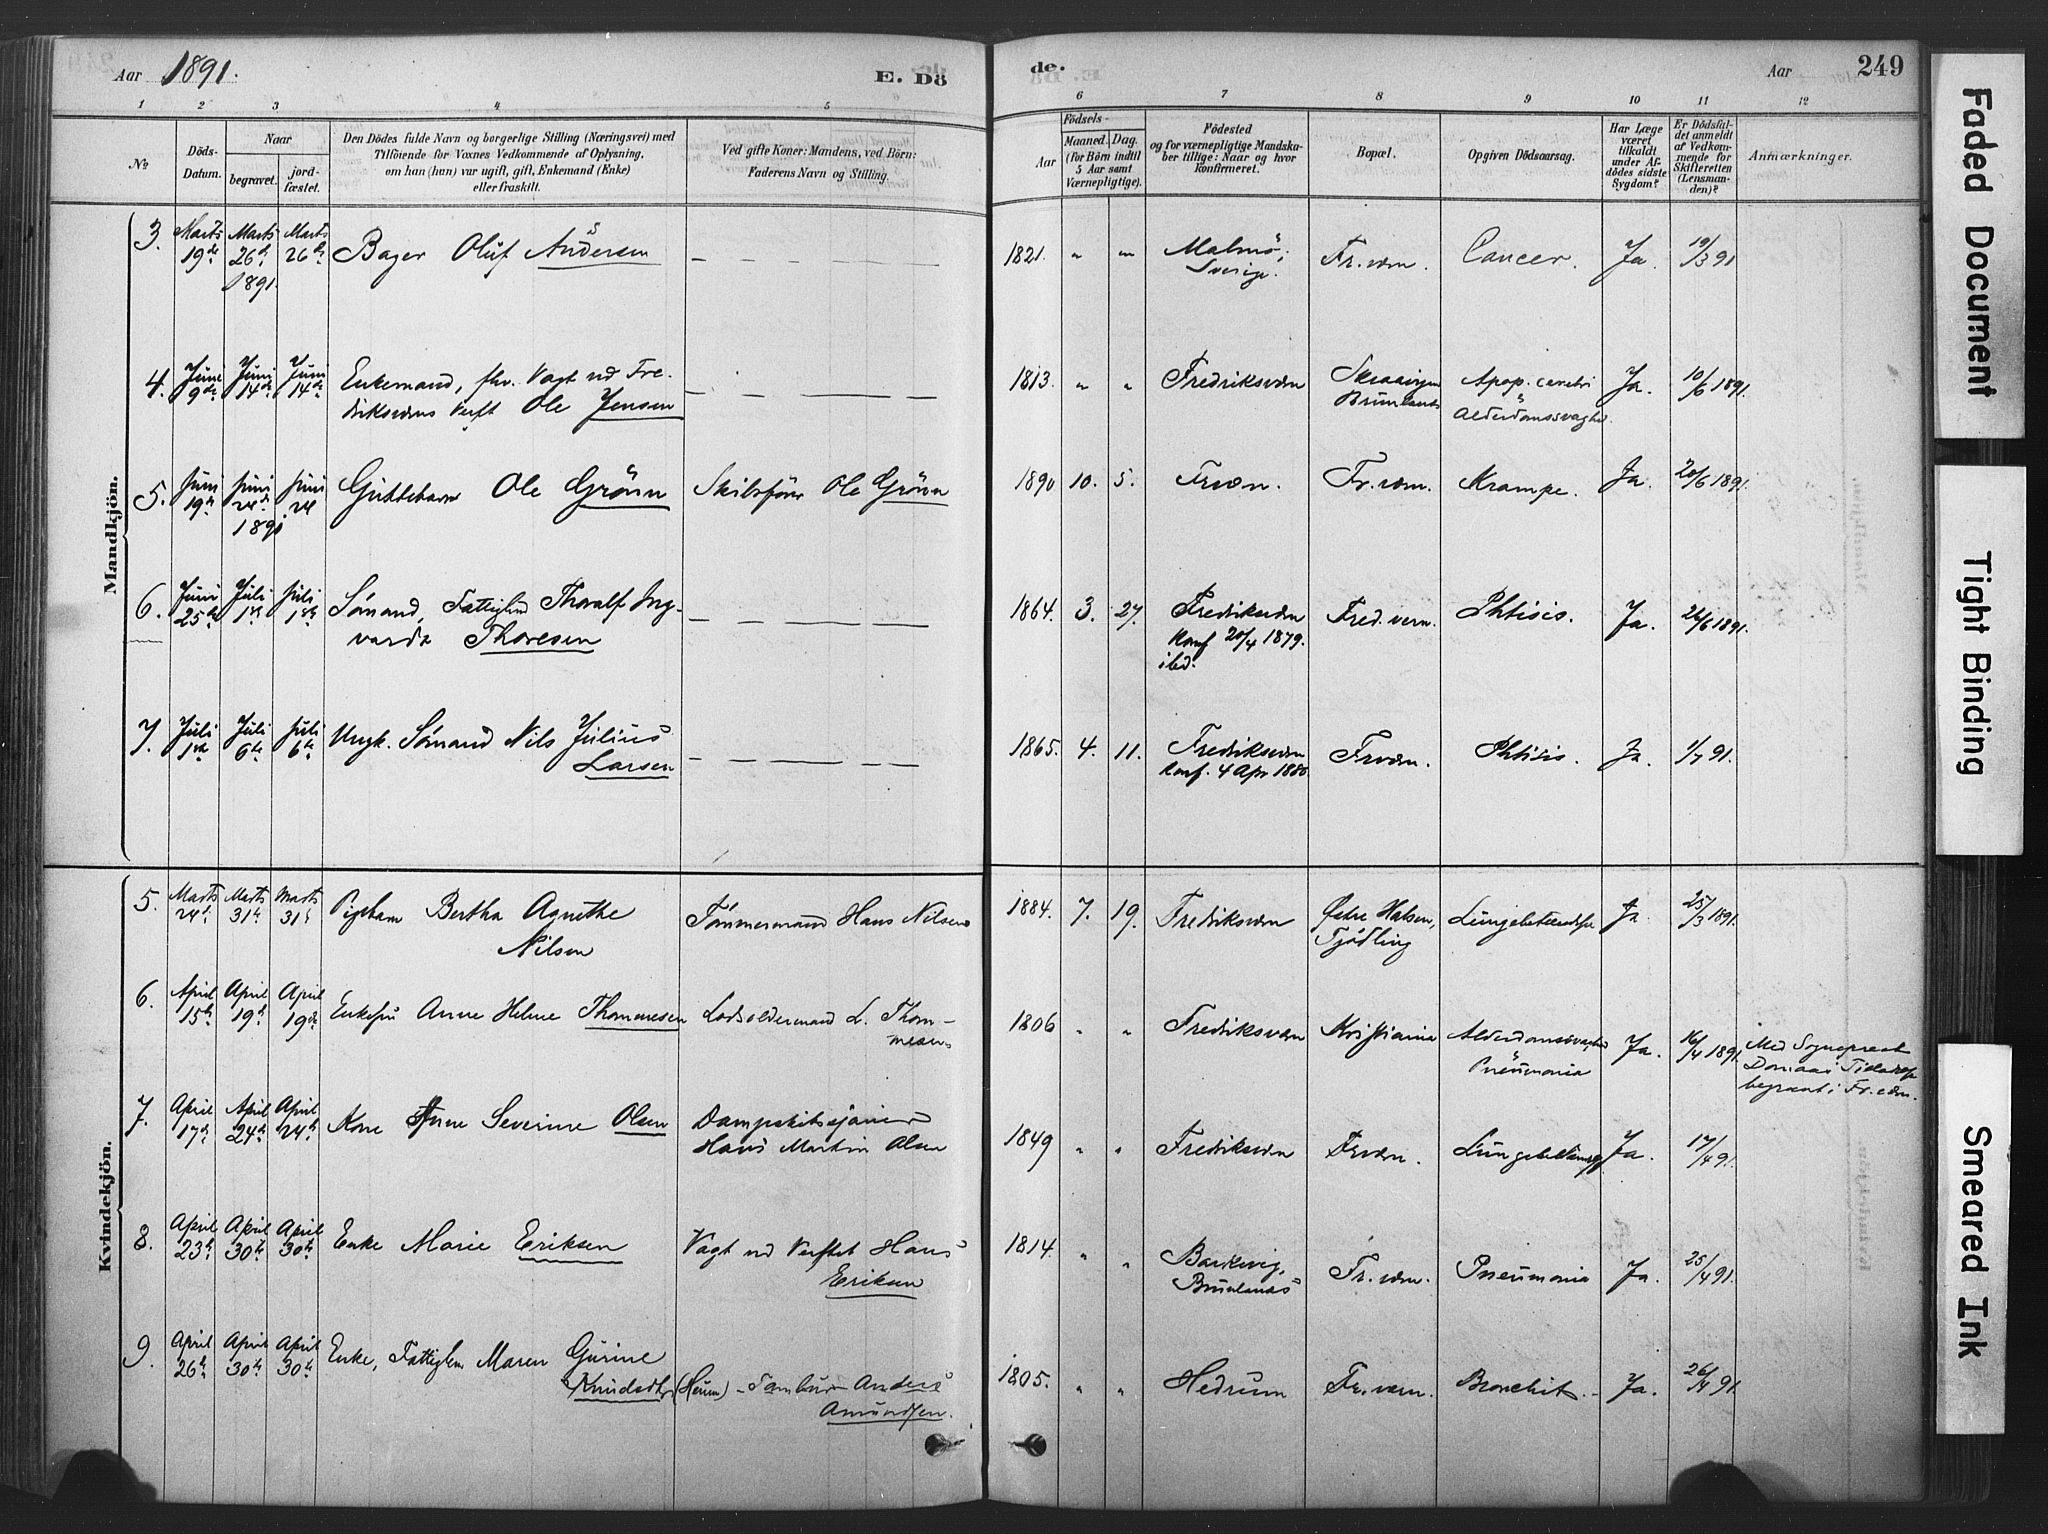 Aar 1891. E. Dö
de. Aar 249
1 2 3 4 5 6 7 8 9 10 11 12
No
Döds-
Datum.
Naar
begravet.
jord-
fæstet.
Den Dödes fulde Navn og borgerlige Stilling (Næringsvei) med
Tilföiende for Voxnes Vedkommende af Oplysning,
om han (hun) var ugift, gift, Enkemand (Enke)
eller fraskilt.
Ved gifte Koner: Mandens, ved Börn:
Faderens Navn og Stilling.
Födsels-
Aar
Maaned. Dag.
(for Börn indtil
5 Aar samt
Værnepligtige).
Födested
og for værnepligtige Mandska-
ber tillige: Naar og hvor
konfirmeret.
Bopæl.
Opgiven Dödsaarsag.
Har Læge
været
tilkaldt
under Af-
dödes sidste
Sygdom?
Er Dödsfal-
det anmeldt
af Vedkom-
mende for
Skifteretten
(Lensman-
den)?
Anmærkninger.
Mandkjön.
3. Marts 19de Marts 26de 1891. Marts 26de
Bager Oluf Andersen
1821. " " Malmö, Sverige. Fr.værn. Cancer. Ja. 19/3 91
4. Juni 9de Juni 14de Juni 14de
Enkemand, fhv. Vagt ved Fre-
driksværns Verft Ole Jensen
1813. " " Fredriksværn Brunlanes Apop. cerebri
Alderdomssvaghed. Ja. 10/6 1891.
5. Juni 19de Juni 24de 1891 Juni 24
Guttebarn Ole Grönn Ole Grönn
1890 10. 5. Frværn. Fr.værn. Krampe. Ja. 20/6 1891.
6. Juni 25de Juli 1ste Juli 1ste
Sömand, Fattiglem Thoralf Ing-
vardt Thoresen
1864. 3. 27. Fredriksværn
Konf 20/4 1879.
ibd.
Fred.vern. Phtisis. Ja. 26/6 1891.
7. Juli 1ste Juli 6te Juli 6te
Ungk. Sömand Nils Julius
Larsen
1865. 4. 11. Fredriksværn
Konf. 4 Apr 1880.
Frværn. Phtisis. Ja. 1/7 91.
Kvindekjön.
5. Marts 24de Marts 31te Marts 31te
Pigebarn Bertha Agnethe
Nilsen
Tömmermand Hans Nilsen
1884. 7. 19. Fredriksværn Østre Halsen,
Tjödling Lungebetændelse Ja 25/3 1891.
6. April 15de April 19de April 19de
Enkefru Anne Helene Thommesen Lodsoldermand L. Thom-
mesen
1806 " " Fredriksværn Kristiania Alderdomssvaghed
Pneumonia Ja. 16/4 1891. Med Sogneprest
begravet i Fr.værn.
7. April 17de April 24de April 24de
Kone Anne Severine Olsen
Hans Martin Olsen
1849 " " Fredriksværn Frværn. Lungebetændelse Ja. 17/4 91.
8. April 23de April 30te April 30te
Enke Marie Eriksen Vagt ved Verftet Hans
Eriksen
1814. " " Barkevig,
Brunlanes Fr.værn. Pneumonia Ja. 25/4 91.
9. April 26de April 30te April 30te
Enke, Fattiglem Maren Gurine
Knudsdtr (Heum) - Tambur Anders
Amundsen.
1805. " " Hedrum Fr.værn. Bronchit. Ja. 26/4 91.
Faded Document
Tight Binding
Smeared Ink